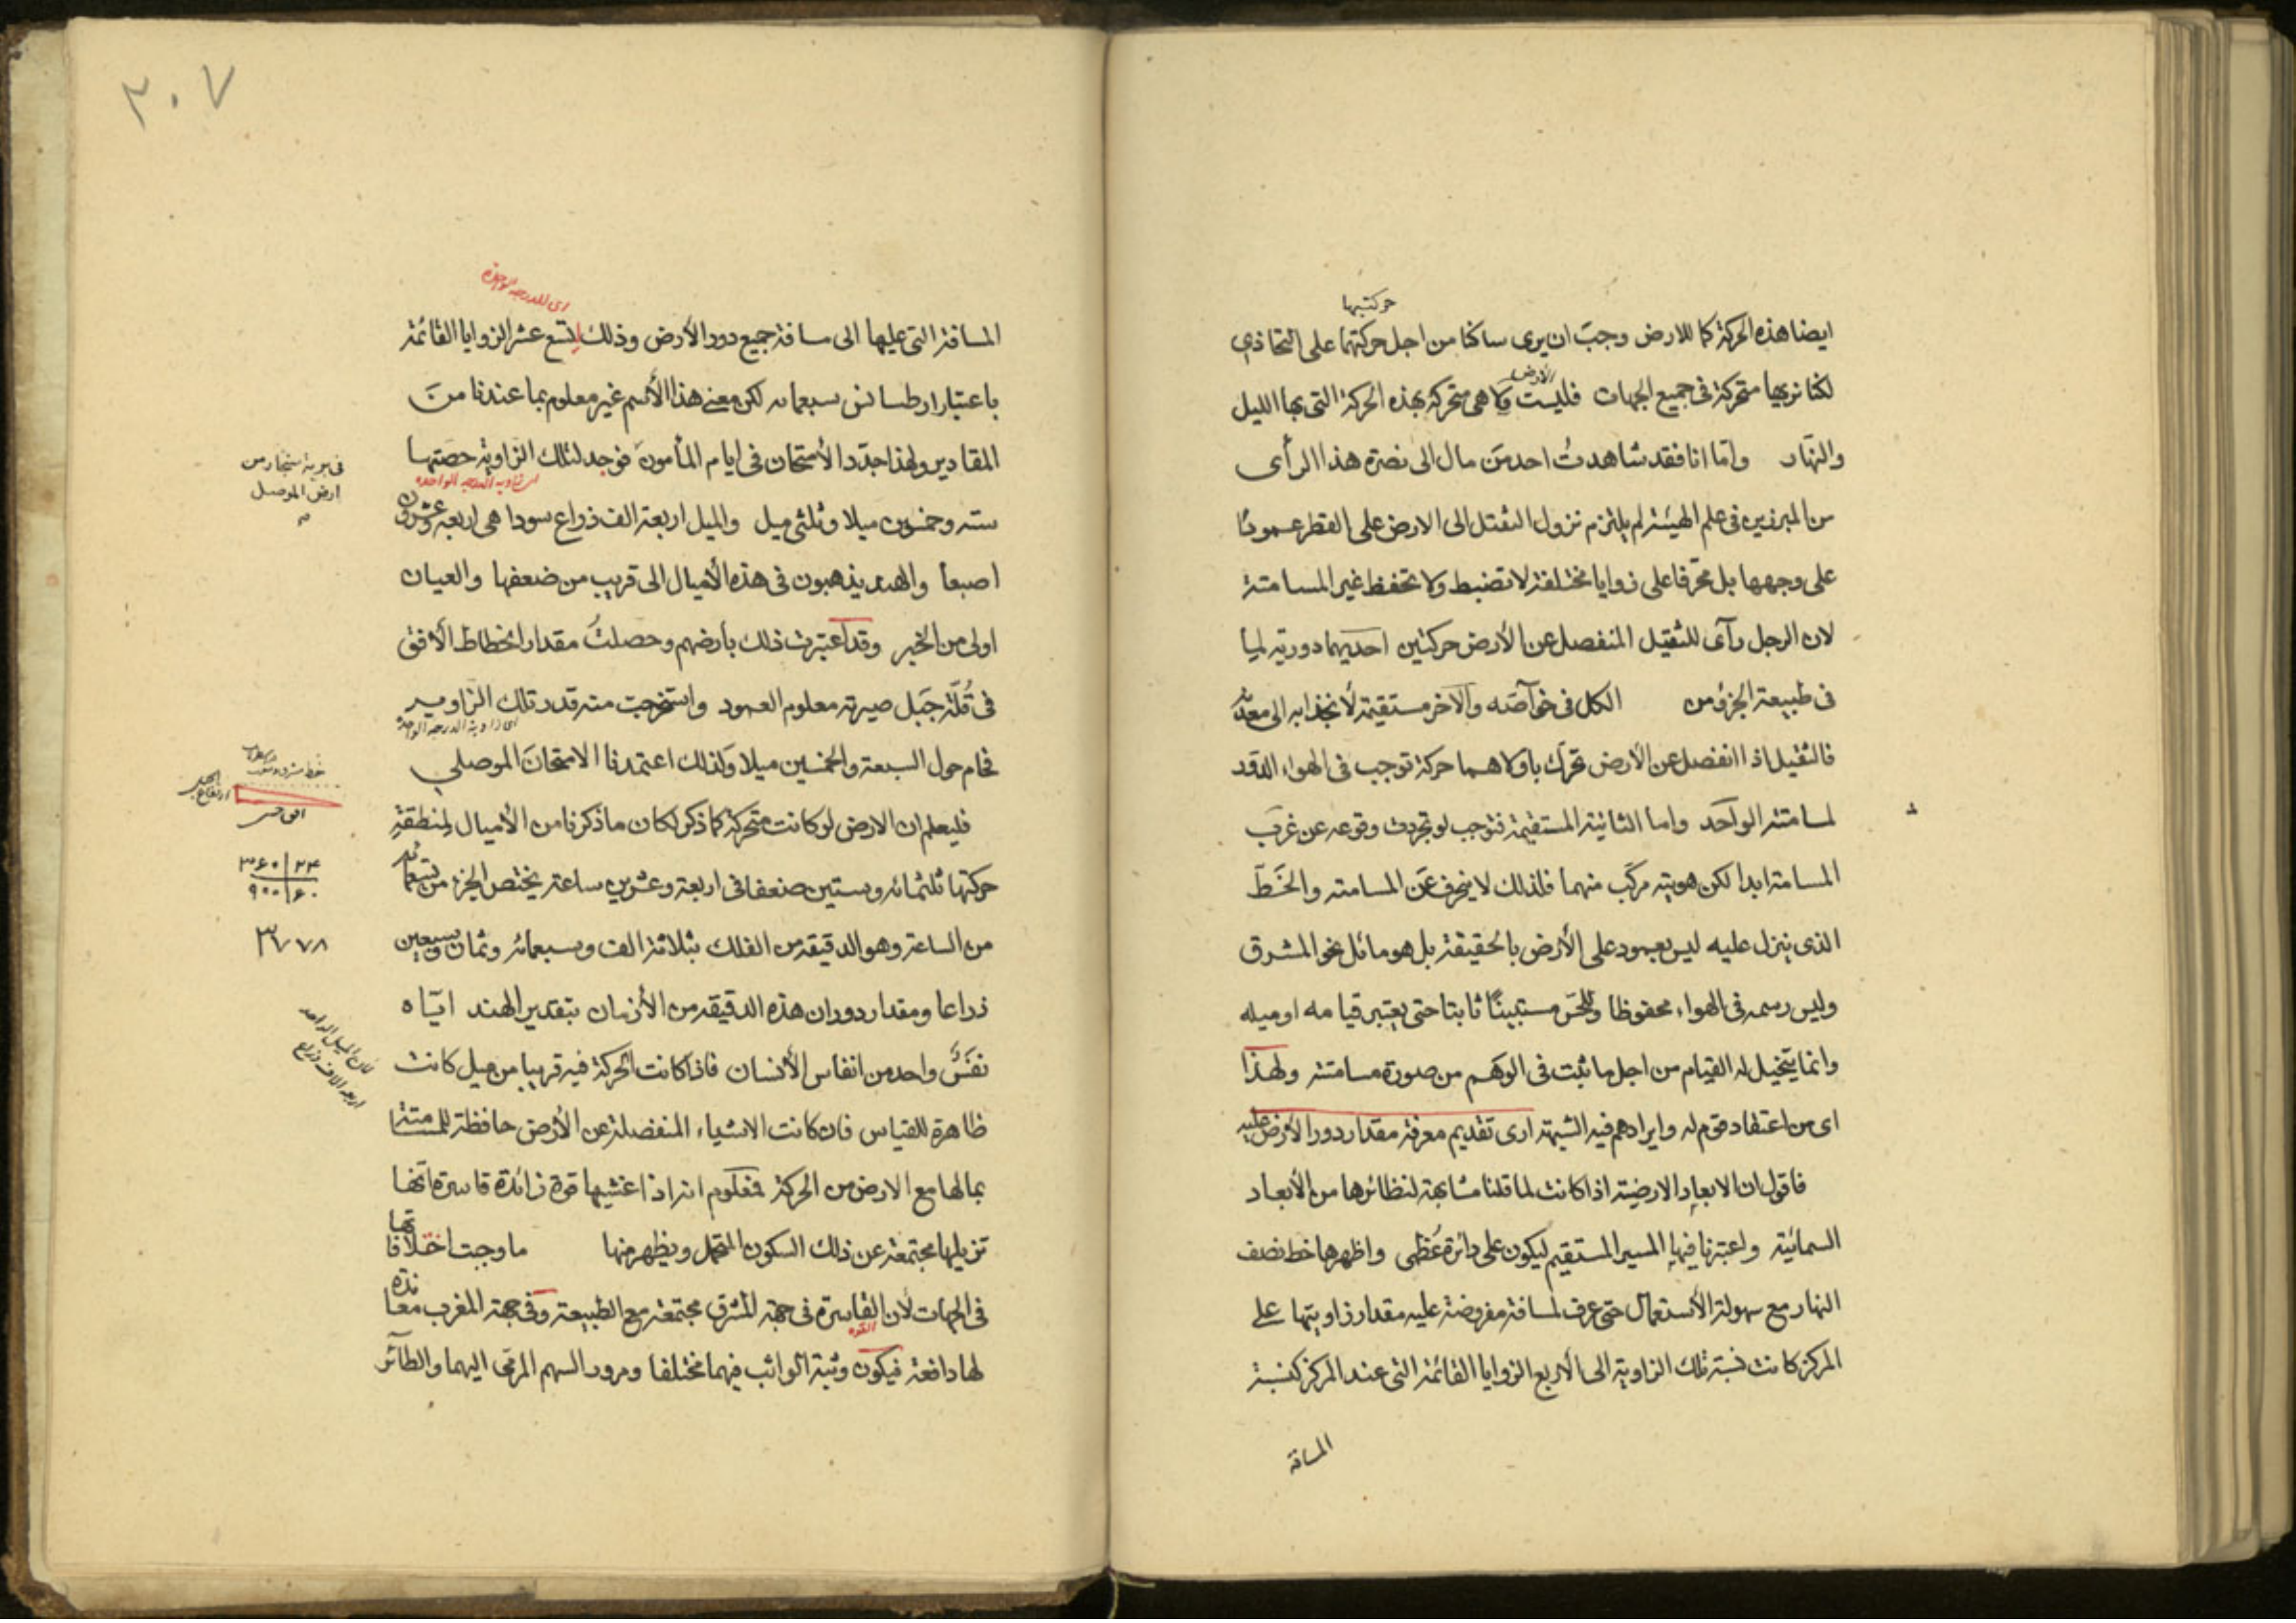 حركتيها
ايضا هذه الحركة كما للارض وجب ان يرى ساكنا من اجل حركتهما على التحاذي
الارض
لكنا نريها متحركة في جميع الجهات فليست ولا هي متحركة بهذه الحركة التي بها الليل
والنهار واما انا فقد شاهدت احد من مال الى نصرة هذا الرأى
من المبرزين في علم الهيئة لم يلتزم نزول الثقل الى الارض على القطر عمودا
على وجهها بل محرفا على زوايا مختلفة لا تضبط ولا تحفظ غير المسامتة
لان الرجل رآى للثقيل المنفصل عن الأرض حركتين احديهما دورية لما
في طبيعة الجزؤ من الكل في خواصه والاخر مستقيمة لأنجذابه الى معدنه
فالثقيل اذا انفصل عن الأرض تحرك باولاهما حركة توجب في الهواء
لمسامتة الواحد واما الثانية المستقيمة فتوجب لو تجردت وقوعه عن غرب
المسامتة ابدا لكن هويته مركب منهما فلذلك لا ينحرف عن المسامته والخط
الذى ينزل عليه ليس بعمود على الأرض بالحقيقة بل هو مائل نحو المشرق
وليس رسمه في الهواء محفوظا وللحس مستبينا ثابتا حتى يعتبر قيامه او ميله
وانما يتخيل له القيام من اجل ما يثبت في الوهم من صورة مسامتته ولهذا
اى من اعتقاد قوم له وايرادهم فيه الشبهة ارى تقديم معرفة مقدار دور الأرض عليه
فاقول ان الابعاد الارضية اذا كانت لما قلنا مشابهة لنظائرها من الأبعاد
السمائية واعتبرنا فيها المسير المستقيم ليكون على دائرة عظمى واظهرها خط نصف
النهار مع سهولة الأستعمال حتى عرف لمسافة مفروضة عليه مقدار زاويتها على
المركز كانت نسبة تلك الزاوية الى الأربع الزوايا القائمة التى عند المركز كنسبة
المسافة
٣٠٧
اى للدرجة الواحدة
المسافة التى عليها الى مسافة جميع دور الأرض وذلك لتسع عشر الزوايا القائمة
باعتبار ارطسانس سبعمائه لكن معنى هذا الأسم غير معلوم بما عندنا من
المقادير ولهذا جدد الأمتحان في ايام المأمون فوجد لتلك الزاوية حصتها
فى برية سنجار من
ارض الموصل
اى زاوية الدرجة الواحده
ستة وخمسون ميلا وثلثى ميل والميل اربعة الف ذراع سودا هى اربعة وعشرون
اصبعا والهند يذهبون في هذه الأميال الى قريب من ضعفها والعيان
اولى من الخبر وقد اعتبرت ذلك بأرضهم وحصلت مقدار انحطاط الأفق
في قلة جبل صيرته معلوم العمود واستخرجت منه قدر تلك الزاوية
اى زاوية الدرجة الواحدة
فحام حول السبعة والخمسين ميلا ولذلك اعتمدنا الامتحان الموصلي
فليعلم ان الارض لو كانت متحركة كما ذكر لكان ما ذكرنا من الأميال لمنطقة
حركتها ثلثمائة وستين ضعفا في اربعة وعشرين ساعة يختص الجزء من تسعمائة
٣٦٠ | ٢٤
٩٠٠ | ٦٠
من الساعة وهو الدقيقة من الفلك بثلاثة الف وسبعمائة وثمان وسبعين
٣٧٧٨
ذراعا ومقدار دوران هذه الدقيقة من الأزمان بتقدير الهند اياه
فان الميل الواحد
اربعة الاف ذراع
نفس واحد من انفاس الأنسان فاذا كانت الحركة فيه قريبا من ميل كانت
ظاهرة للقياس فان كانت الاشياء المنفصلة عن الأرض حافظة للمسامتة
بما لها مع الارض من الحركة فمعلوم انه اذا غشيها قوة زائدة قاسرة انها
تزيلها مجتمعة عن ذلك السكون المتحمل ويظهر منها ما وجبت اختلافاتها
في الجهات لأن القاسرة في جهة المشرق مجتمعة مع الطبيعة وفى جهة المغرب معاندة
القوة
لها دافعة فيكون وثبة الواثب فيهما مختلفا ومرور السهم المرمى اليهما والطآئر